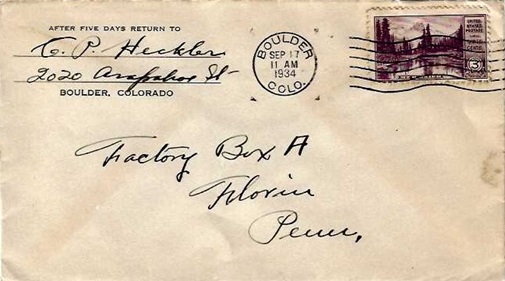 AFTER FIVE DAYS RETURN TO
C. P. Heckler
2020 Arapahoe St
BOULDER, COLORADO
BOULDER
SEP 17
11 AM
1934
COLO.
UNITED
STATES
POSTAGE
3
Factory Box A
Florin
Penn,